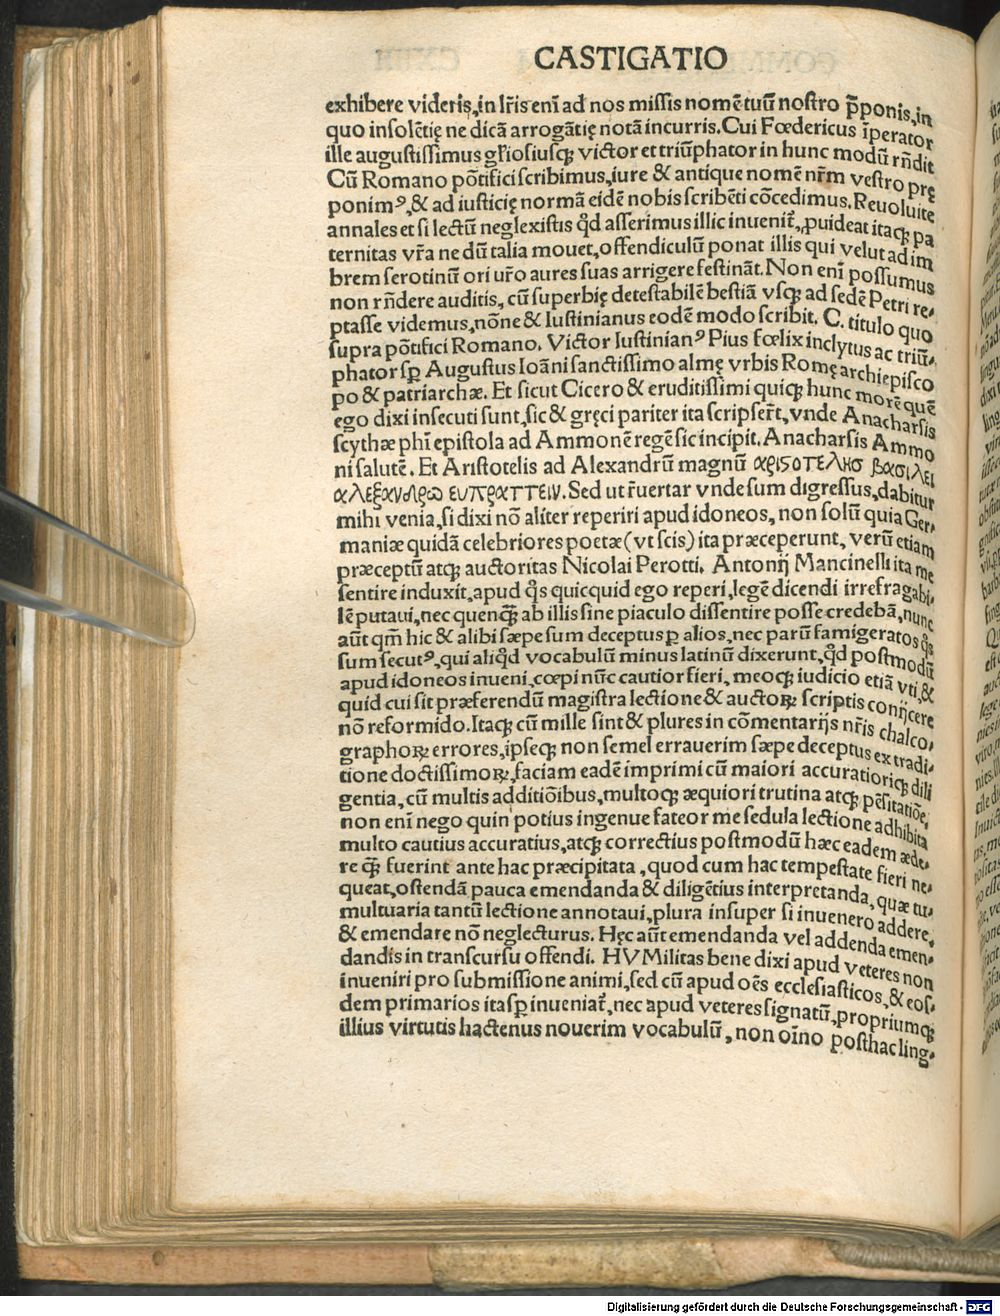 CASTIGATIO
exhibere videris, in lr̄is eni᷑ ad nos missis nomē tuū nostro p̄ponis, in
quo insolētię ne dicā arrogātię notā incurris. Cui Fœdericus īperator
ille augustissimus gl̄iosiusqꝫ victor et triūphator in hunc modū rn̄dit
Cū Romano pōtifici scribimus, iure & antique nomē nr̄m vestro prę
ponimꝰ, & ad iusticię normā eidē nobis scribēti cōcedimus. Reuoluite
annales et si lectū neglexistis qd̄ asserimus illic inuenit᷑, ꝓuideat itaqꝫ pa
ternitas vr̄a ne dū talia mouet, offendiculū ponat illis qui velut ad im
brem serotinū ori ur̄o aures suas arrigere festināt. Non enī possumus
non rn̄dere auditis, cū superbię detestabilē bestiā vsqꝫ ad sedē Petri re⸗
ptasse videmus, nōne & Iustinianus eodē modo scribit. C. titulo quo
supra pōtifici Romano. Victor Iustinianꝰ Pius fœlix inclytus ac triū⸗
phator sꝑ Augustus Ioāni sanctissimo almę vrbis Romę archiepisco
po & patriarchæ. Et sicut Cicero & eruditissimi quiqꝫ hunc morē quē
ego dixi insecuti sunt, sic & gręci pariter ita scripser̄t, vnde Anacharsis
scythæ phī epistola ad Ammonē regē sic incipit. Anacharsis Ammo
ni salutē. Et Aristotelis ad Alexandrū magnū αριςοτεληο βασιλει
αλεξανδρω ευπραττειν. Sed ut r̄uertar vnde sum digressus, dabitur
mihi venia, si dixi nō aliter reperiri apud idoneos, non solū quia Ger⸗
maniæ quidā celebriores poetæ (vt scis) ita præceperunt, verū etiam
præceptū atqꝫ auctoritas Nicolai Perotti. Antonij Mancinelli ita me
sentire induxit, apud q̄s quicquid ego reperi, legē dicendi irrefragabi⸗
lē putaui, nec quenqꝫ̄ ab illis sine piaculo dissentire posse credebā, nunc
aūt qm̄ hic & alibi sæpe sum deceptus ꝑ alios, nec parū famigeratos q̄s
sum secutꝰ, qui aliqd̄ vocabulū minus latinū dixerunt, qd̄ postmodū
apud idoneos inueni, cœpi nūc cautior fieri, meoqꝫ iudicio etiā vti, &
quid cui sit præferendū magistra lectione & auctoꝝ scriptis conijcere
nō reformido. Itaqꝫ cū mille sint & plures in cōmentarijs nr̄is chalco⸗
graphoꝝ errores, ipseqꝫ non semel errauerim sæpe deceptus ex tradi⸗
tione doctissimoꝝ, faciam eadē imprimi cū maiori accuratioriqꝫ dili
gentia, cū multis additiōibus, multoqꝫ æquiori trutina atqꝫ pēsitatiōe,
non enī nego quin potius ingenue fateor me sedula lectione adhibita
multo cautius accuratius, atqꝫ correctius postmodū hæc eadem æde⸗
re qꝫ̄ fuerint ante hac præcipitata, quod cum hac tempestate fieri ne⸗
queat, ostendā pauca emendanda & diligētius interpretanda, quæ tu⸗
multuaria tantū lectione annotaui, plura insuper si inuenero addere,
& emendare nō neglecturus. Hęc aūt emendanda vel addenda emen⸗
dandis in transcursu offendi. HVMilitas bene dixi apud veteres non
inueniri pro submissione animi, sed cū apud oēs ecclesiasticos, & eos⸗
dem primarios ita sꝑ inueniat᷑, nec apud veteres signatū, propriumqꝫ
illius virtutis hactenus nouerim vocabulū, non oīno posthac ling⸗
Digitalisierung gefördert durch die Deutsche Forschungsgemeinschaft - DFG